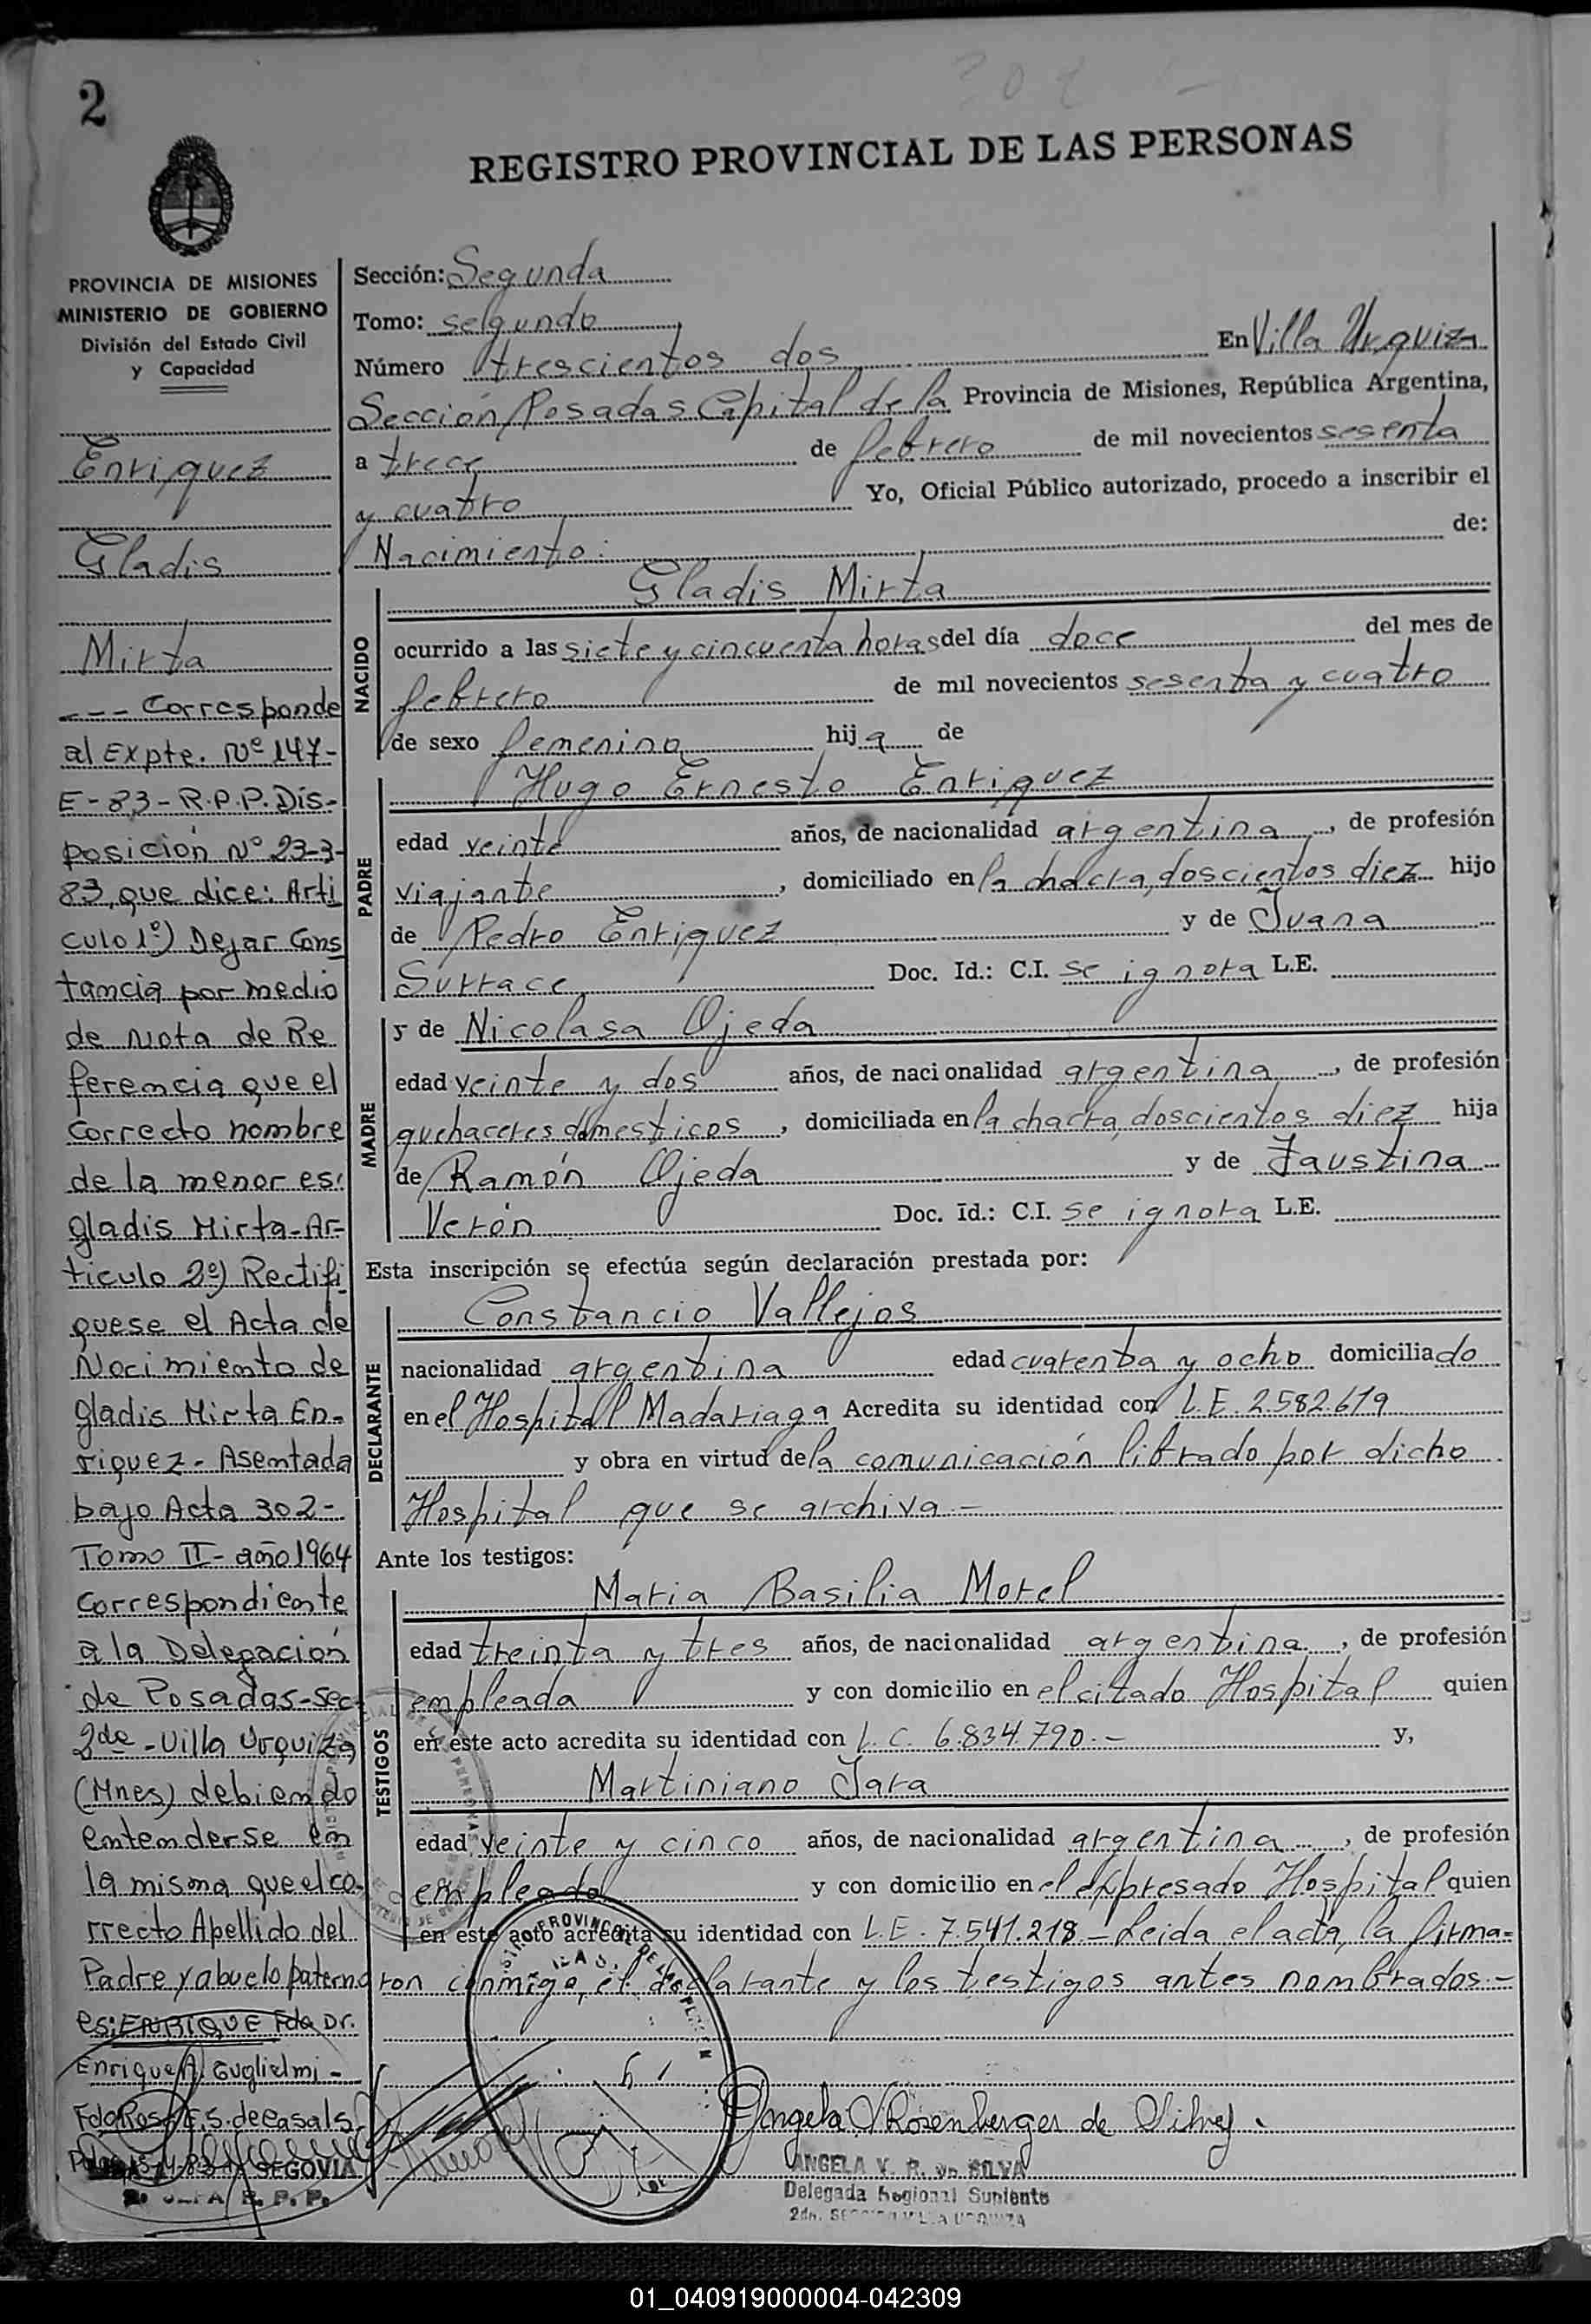 2
REGISTRO PROVINCIAL DE LAS PERSONAS
PROVINCIA DE MISIONES
MINISTERIO DE GOBIERNO
División del Estado Civil
y Capacidad
Enriquez
Gladis
Mirta
--- Corresponde
al Expte. Nº 147-
E-83-R.P.P. Dis-
posición Nº 23-3-
83, que dice: Arti
culo 1º) Dejar Cons
tancia por medio
de Nota de Re
ferencia que el
correcto nombre
de la menor es:
gladis Mirta-Ar-
ticulo 2º) Rectifi
quese el Acta de
Nacimiento de
gladis Mirta En-
riquez- Asentada
bajo Acta 302-
Tomo II- año 1964
Correspondiente
a la Delegación
de Posadas-Sec-
2da-Villa Urquiza
(Mnes) debiendo
entenderse en
la misma que el co-
rrecto Apellido del
Padre y abuelo paterno
es: ENRIQUE Fdo Dr.
Enrique A. Guglielmi-
Fdo Rosa E.S. de Casals
SEGOVIA
R. P. P.
Sección: Segunda
Tomo: segundo
Número trescientos dos En Villa Urquiza
Sección Posadas Capital de la Provincia de Misiones, República Argentina,
a trece de febrero de mil novecientos sesenta
y cuatro Yo, Oficial Público autorizado, procedo a inscribir el
Nacimiento: de:
NACIDO
Gladis Mirta
ocurrido a las siete y cincuenta horas del día doce del mes de
febrero de mil novecientos sesenta y cuatro
de sexo femenino hija de
PADRE
Hugo Ernesto Enriquez
edad veinte años, de nacionalidad argentina, de profesión
viajante, domiciliado en la chacra, doscientos diez hijo
de Pedro Enriquez y de Juana
Surrace Doc. Id.: C.I. se ignora L.E.
MADRE
y de Nicolasa Ojeda
edad veinte y dos años, de nacionalidad argentina, de profesión
quehaceres domesticos, domiciliada en la chacra, doscientos diez hija
de Ramón Ojeda y de Faustina
Verón Doc. Id.: C.I. se ignora L.E.
Esta inscripción se efectúa según declaración prestada por:
DECLARANTE
Constancio Vallejos
nacionalidad argentina edad cuarenta y ocho domiciliado
en el Hospital Madariaga Acredita su identidad con L.E. 2.582.619
y obra en virtud de la comunicación librado por dicho
Hospital que se archiva.-
Ante los testigos:
TESTIGOS
Maria Basilia Morel
edad treinta y tres años, de nacionalidad argentina, de profesión
empleada y con domicilio en el citado Hospital quien
en este acto acredita su identidad con L.C. 6.834.790.- y,
Martiniano Jara
edad veinte y cinco años, de nacionalidad argentina, de profesión
empleado y con domicilio en el expresado Hospital quien
en este acto acredita su identidad con L.E. 7.541.218.- Leida el acta, la firma=
ron conmigo, el declarante y los testigos antes nombrados.-
Angela V Rosenberger de Silva.
ANGELA V. R. DE SILVA
Delegada Regional Suplente
2da. SECCION VILLA URQUIZA
01_040919000004-042309